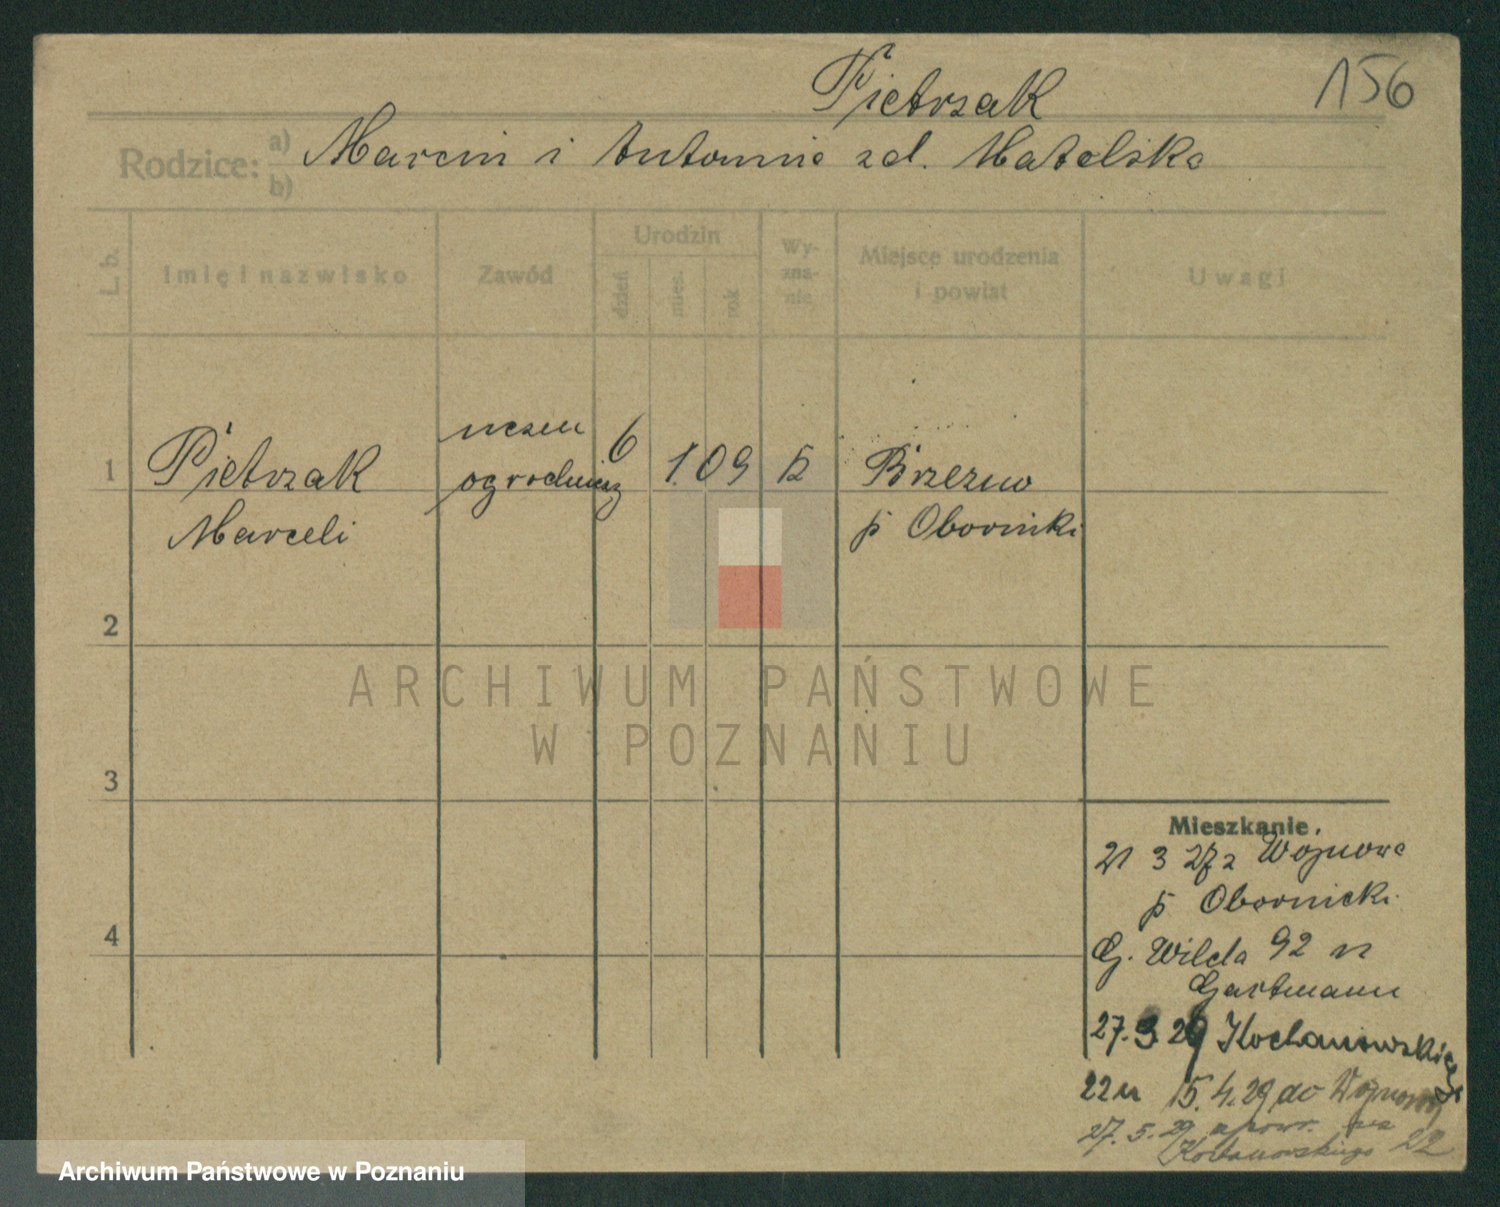 Pietrzak
156
Rodzice: a) b)
Marcin i Antonina zd. Matelska
L. b.
Imię i nazwisko
Zawód
Urodzin
dzień
mies.
rok
Wy-
zna-
nie
Miejsce urodzenia
i powiat
Uwagi
1
Pietrzak
Marceli
uczeń
ogrodnicz
6
1.
09
Brzezno
p Oborniki
2
3
4
ARCHIWUM PAŃSTWOWE
W POZNANIU
Mieszkanie.
21 3 27 z Wojnowa
p Obornicki
G. Wilda 92 u
Gartmann
27.3.29 Kochanowskiego
22 u 15.4.29 do Wojnowa
27.5.29 powr. na
Kochanowskiego 22
Archiwum Państwowe w Poznaniu